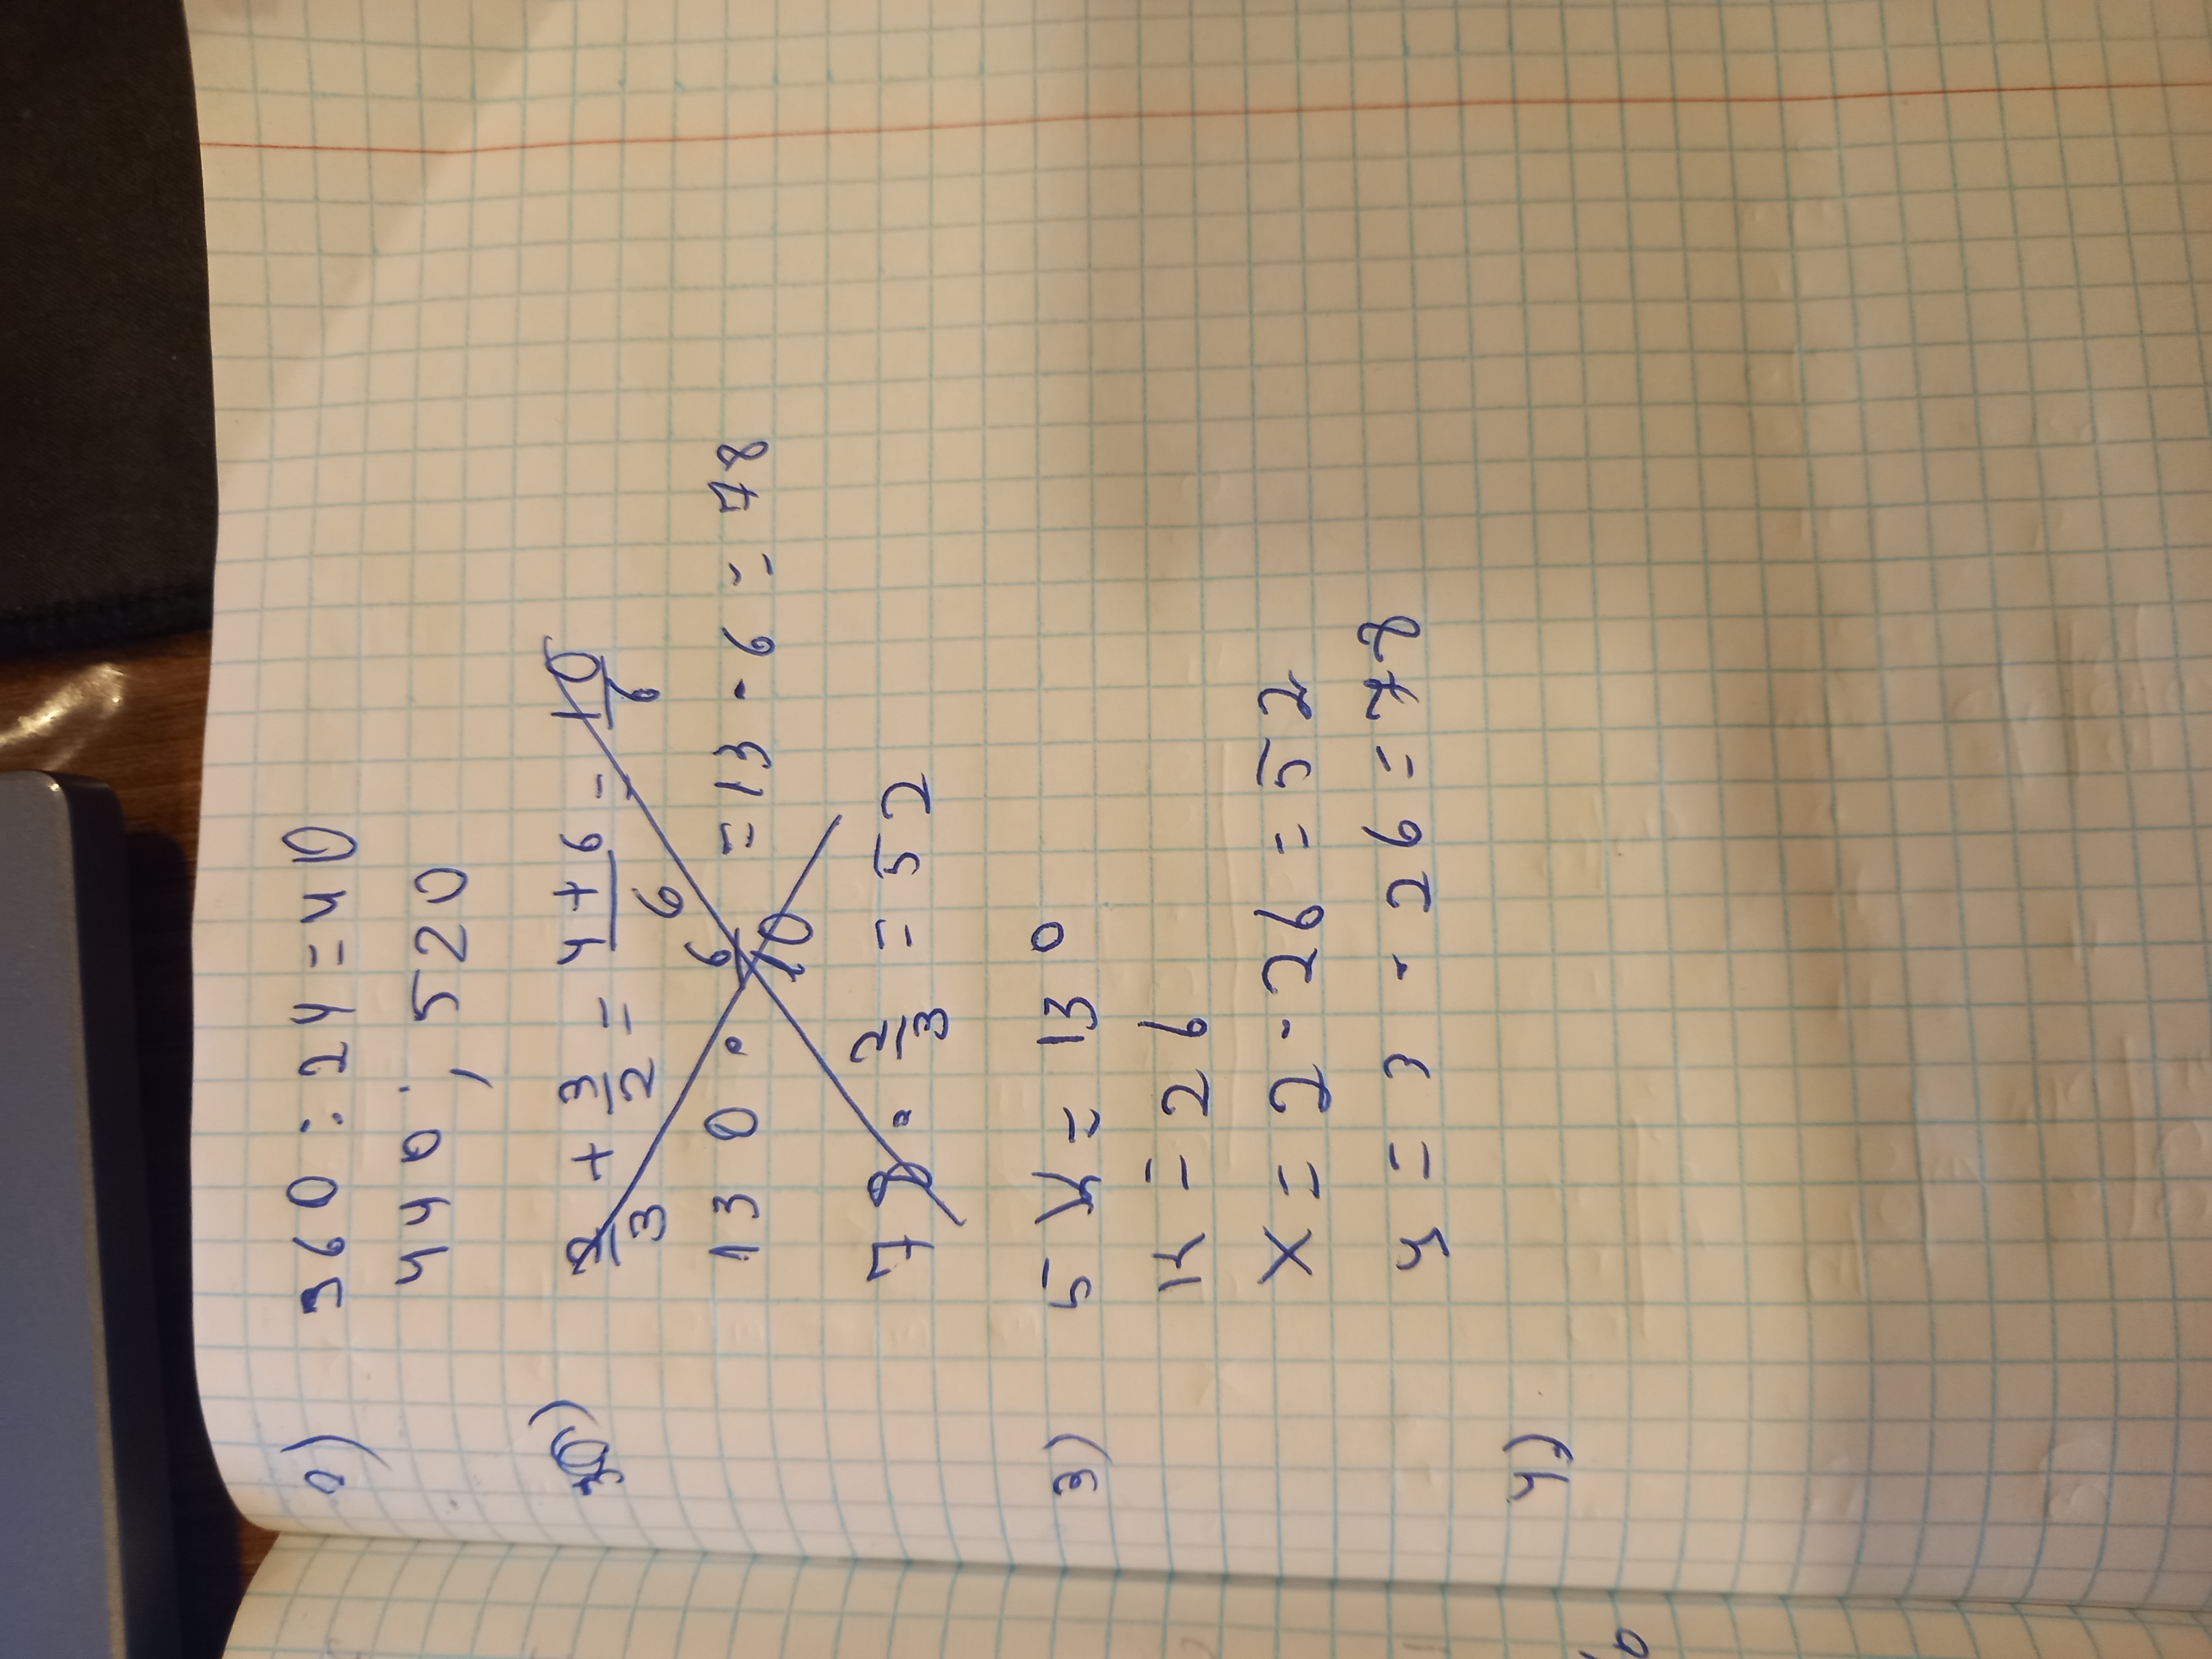 2) 960 : 24 = 40
440 ; 520
3) 2/3 + 3/2 = (4 + 6)/6 = 10/6
130 · 6/10 = 13 · 6 = 78
78 · 2/3 = 52
3) 5 K = 130
K = 26
x = 2 · 26 = 52
y = 3 · 26 = 78
4)